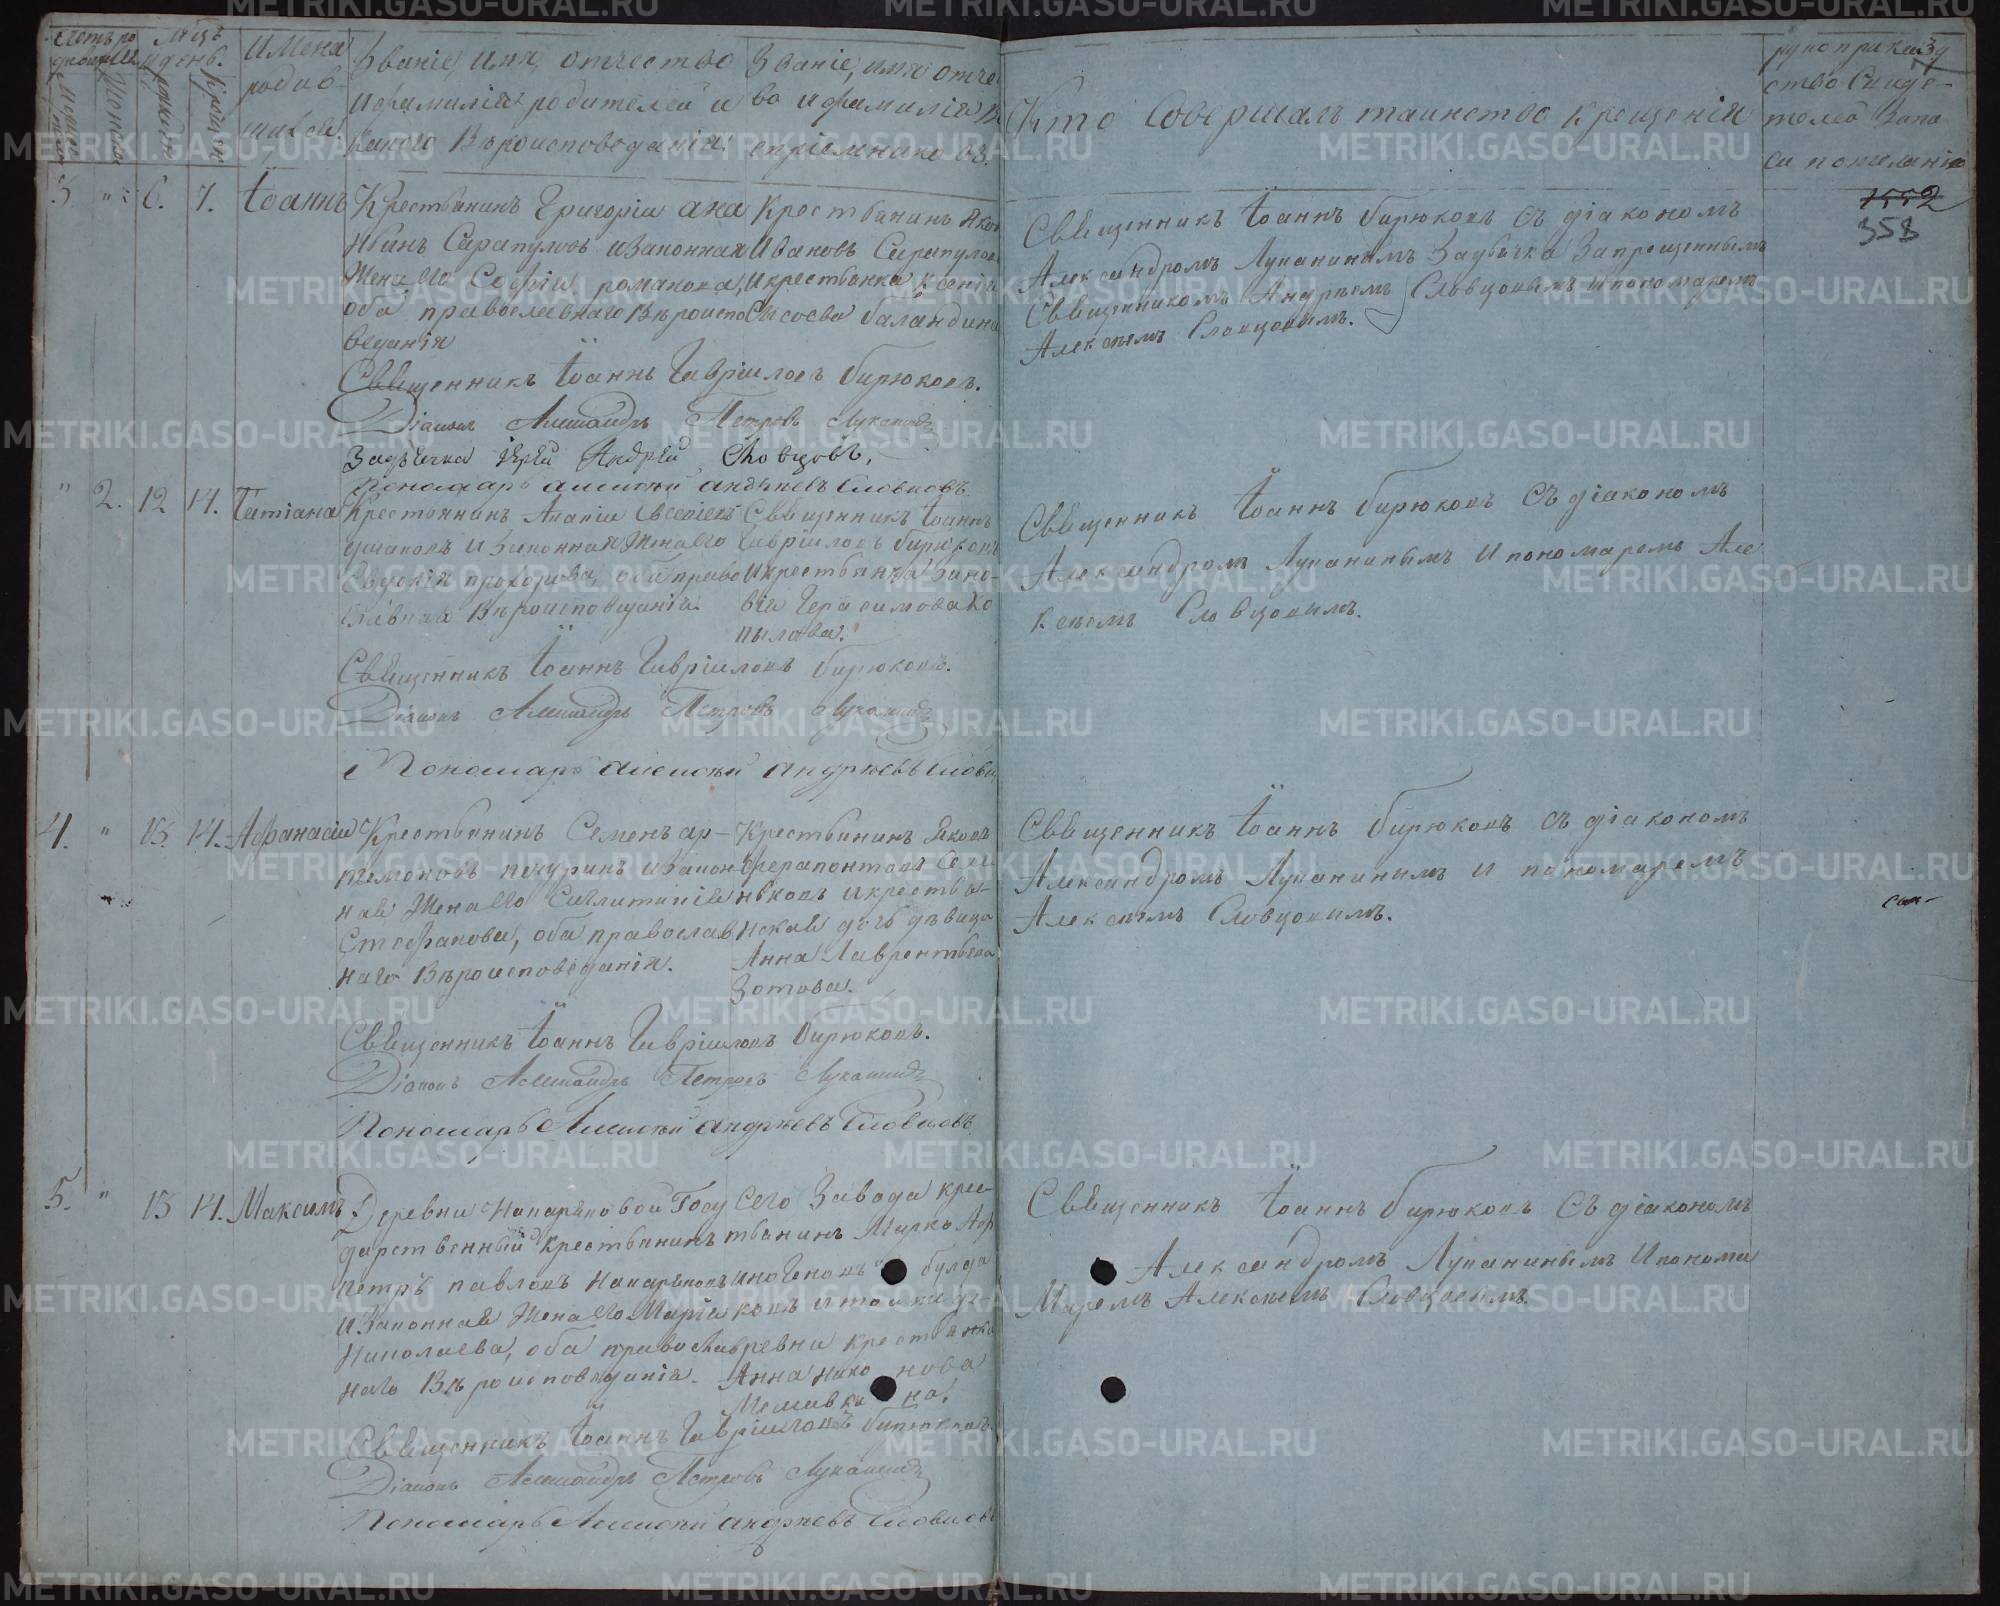 Счетъ ро
дившихся
Мѣс:
и день.
Имена
родив-
шихся.
Званіе, имя, отчество
и фамилія родителей и
какого Вѣроисповеданія.
Званіе, имя отче
во и фамилія в
спріемниковъ.
Кто Совершалъ таинство Крещенія
рукоприклад
ство Свиде-
телей Запи
си по желанію
1552
358
3 " 6. 7. Іоаннъ
Крестьянинъ Григорій
Сарапуловъ и Законная
Жена его Софія романова,
оба православнаго Вѣроиспо
веданія
Крестьянинъ Яков
Ивановъ Сарапулов
и крестьянка Ксенія
Сысоева баландина
Священникъ Іоаннъ бирюковъ съ діакономъ
Александромъ Лупанинымъ Задьячка Запрещеннымъ
Священникомъ Андреемъ Словцовымъ и пономаремъ
Алексѣемъ Словцовымъ.
Священникъ Іоаннъ Гавріиловъ бирюковъ.
Діаконъ Александръ Петровъ
Задьячка Іерей Андрей Словцовъ,
Пономарь Алексѣй андреевъ Словцовъ
" 2. 12 14. Татіана
Крестьянинъ Ананій Евсѣіевъ
ушаковъ и Законная Жена его
Евдокія прохорова, оба право
славнаго Вѣроисповеданія.
Священникъ Іоаннъ
Гавріиловъ бирюковъ
и крестьянка Зино-
вія Герасимова Ко
пылова.
Священникъ Іоаннъ бирюковъ съ діакономъ
Александромъ Лупанинымъ и пономаремъ Але
ксѣемъ Словцовымъ.
Священникъ Іоаннъ Гавріиловъ бирюковъ.
Діаконъ Александръ Петровъ
Пономарь алексѣй андреевъ Словц
4. " 13. 14. Афанасій
Крестьянинъ Семенъ ар-
темоновъ пичугинъ и Закон
ная Жена его
Стефанова, оба православ
наго Вѣроисповеданія.
Крестьянинъ Яковъ
Ферапонтовъ Сели
нковъ и крестья-
нская дочь дѣвица
Анна Лаврентьева
Зотова.
Священникъ Іоаннъ бирюковъ съ діакономъ
Александромъ Лупанинымъ и пономаремъ
Алексѣемъ Словцовымъ.
Священникъ Іоаннъ Гавріиловъ бирюковъ.
Діаконъ Александръ Петровъ
Пономарь Алексѣй андреевъ Словцовъ
5. " 13 14. Максимъ
Деревни Напарьиовой Госу
дарственный Крестьянинъ
петръ павловъ
и Законная Жена его Марія
Николаева, оба православ
наго Вѣроисповеданія.
Сего Завода крес
тьянинъ Марко Аф
иногеновъ булда
ковъ и той же де-
ревни крестьянка
Анна нико нова
Священникъ Іоаннъ бирюковъ съ діакономъ
Александромъ Лупанинымъ и понома
маремъ Алексѣемъ Словцовымъ.
Священникъ Іоаннъ Гавріиловъ бирюковъ.
Діаконъ Александръ Петровъ
Пономарь Алексѣй андреевъ Словцовъ
METRIKI.GASO-URAL.RU